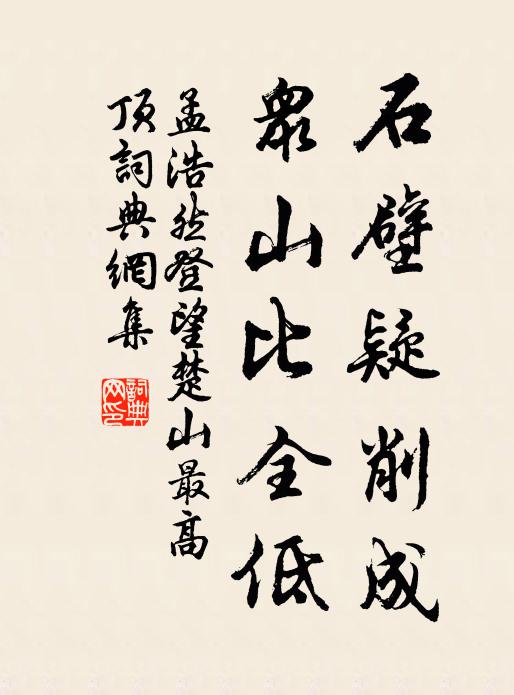 石壁疑削成
眾山比全低
孟浩然登望楚山最高
頂詞典網集
詞典
网印